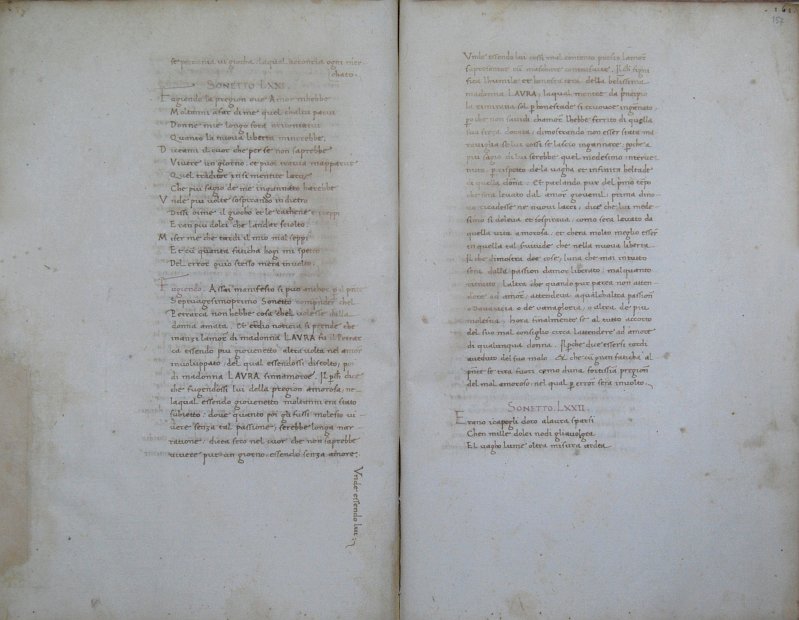 se potentia vi giocha, laqual acconcia ogni mer-
chato.
SONETTO LXXI.
Fugiendo la pregion oue Amor mhebbe
Moltanni a far di me quel challui parue
Donne mie longo fora a ricontarue
Quanto la nuoua liberta mincrebbe.
Diceami il cuor che per se non saprebbe
Viuere un giorno, et puoi tra via mapparue
Quel traditore in si mentite larue
Che piu sagio de me ingannato harebbe
Vnde piu volte sospirando indietro
Dissi oime il giocho et le cathene e i ceppi
Eran piu dolci che landar sciolto.
Miser me che tardi il mio mal seppi
Et cū quanta faticha hogi mi spetro
Del error quio stesso mera inuolto.
Fugiendo. Assai manifesto si puo anchor p il pñte
Septuagesimoprimo Sonetto comprender chel
Petrarca non hebbe cosa chel
donna amata. Et etdio noticia si prende che
inanzi lamor di madonna LAVRA fu il Petrar
ca essendo piu giouenetto altra volta nel amor
inuoluppato, del qual essendosi disciolto, poi
di madonna LAVRA sinnamoroe. Il pch dice
che fugendossi lui della pregion amorosa, ne
laqual essendo giouenetto moltanni era stato
subietto, doue quanto poi gli fussi molesto vi-
uere senza tal passione, serebbe longa nar
ratione, dicea seco nel cuor che non saprebbe
viuere pur un giorno, essendo senza amore.
Vnde essendo lui
157
Vnde essendo lui cossi mal contento puosto lamor
sapresentoe cū maschere contrafacte. Il chi signi
fica lhumile et honesta cera della belissima
madonna LAVRA, laqual mentre da principio
la rimiraua sol p honestade si truouoe ingannato,
po che non sauidi chamor lhebbe ferito di quella
sua terza donna, dimostrando non esser stata ma
rauiglia se lui cossi se lascio ingannare, poche a
piu sagio di lui serebbe quel medesimo interue
nuto, p rispetto dela vagha et infinita beltade
di quella dōna. Et parlando pur del pmo tēpo
che sera leuato dal amor giouenil, prima che
ricadesse ne nuoui lacci, dice che lui mede-
simo si doleua et sospiraua, como sera leuato da
quella vita amorosa, et chera molto meglio esser
in quella tal seruitude che nella nuoua liberta.
Il che dimostra doe cose, luna che mai in tutto
sera dalla passion damor liberato, mal quanto
Laltra che quando pur puoca non atten-
dere ad amor, attendeua a qualchaltra passion
o dauaritia o de vanagloria, o altra de piu
molestia, hora finalmente se al tutto accorto
del suo mal consiglio circa lattendere ad amore
di qualunqua donna. Il pche dice essersi tardi
aueduto del suo malo. Et che cū gran faticha al
pñte se trea fuori como duna fortissima pregion
del mal amoroso, nel qual p error sera inuolto.
SONETTO. LXXII.
Erano i capegli doro alaura sparsi
Chen mille dolci nodi gliauolgea
El vagho lume oltra misura ardea